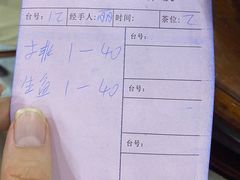 台号：12 经手人：丽 时间： 茶位：2
台号：
1—40
生 1—40
台号：
台号：